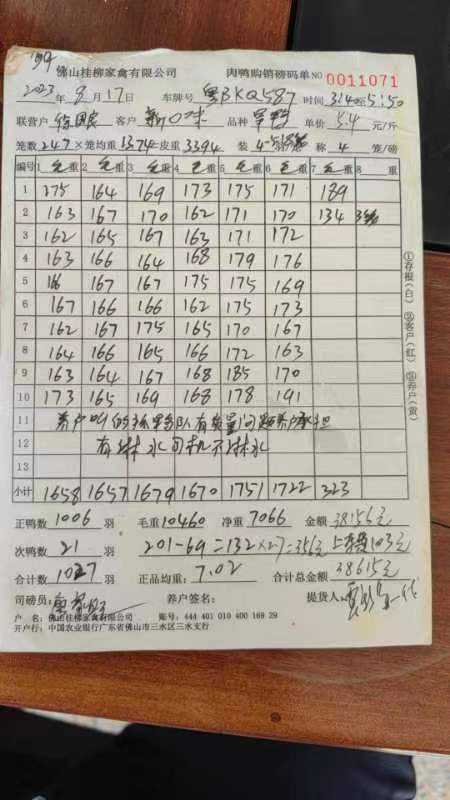 佛山桂柳家禽有限公司 肉鸭购销磅码单NO 0011071
2023年8月17日 车牌号 粤BKQ587 时间 3:40至5:50
联营户 客户 新口味 品种 单价 5.4 元/斤
笼数 247×笼均重 13.74=皮重 3394 装 称 4 笼/磅
编号 1 毛重 2 毛重 3 毛重 4 毛重 5 毛重 6 毛重 7 毛重 8 重
1 175 164 169 173 175 171 189
2 163 167 170 162 171 170 134
3 162 165 167 163 171 172
4 163 166 164 168 179 176
5 166 167 167 175 175 169
6 167 166 166 162 175 173
7 162 167 175 165 170 167
8 164 166 165 166 172 163
9 163 164 167 168 185 170
10 173 165 169 168 178 191
11 养户叫的抓鸭队有质量问题养户承担
12 有淋水司机不淋水
13
小计 1658 1657 1679 1670 1751 1722 323
正鸭数 1006 羽 毛重 10460 净重 7066 金额 38156元
次鸭数 21 羽 201-69=132×27=356元 103元
合计数 1027 羽 正品均重: 7.02 合计总金额 38615元
司磅员: 养户签名: 提货人:
户 名: 佛山桂柳家禽有限公司 账号: 444 401 010 400 169 29
开户行: 中国农业银行广东省佛山市三水区三水支行
①存根(白) ②客户(红) ③养户(黄)